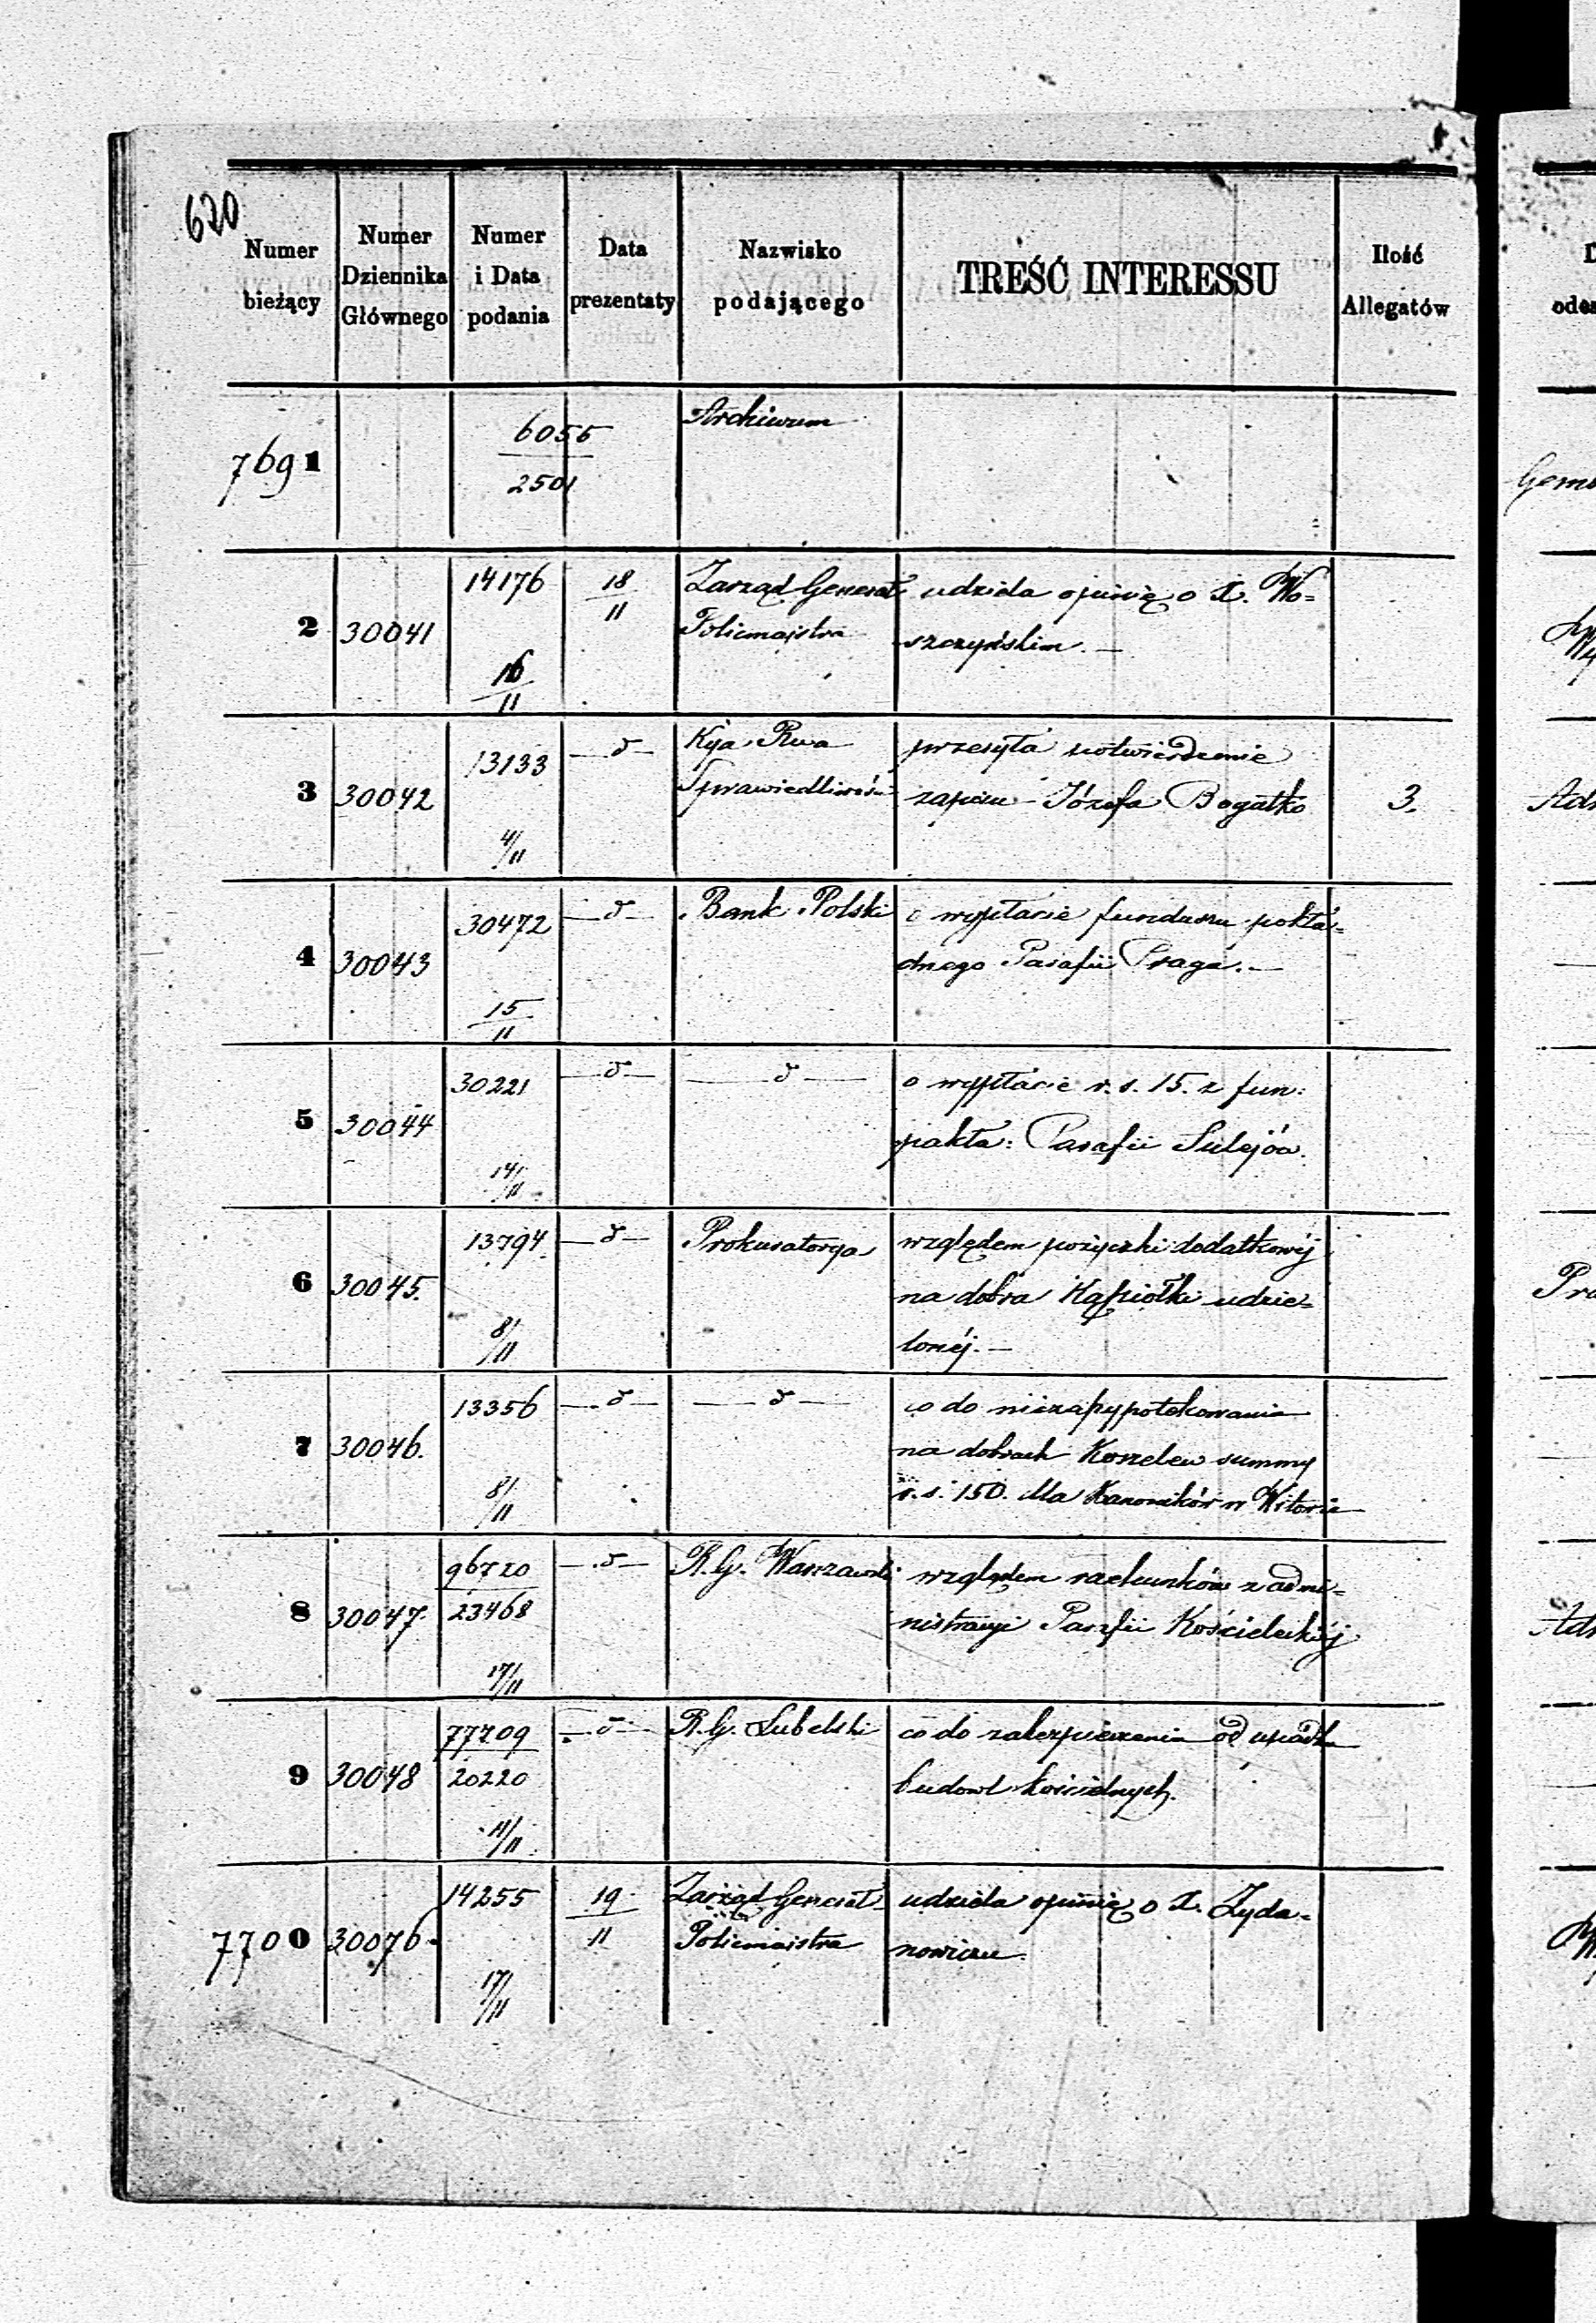 620
Numer bieżący
Numer Dziennika Głównego
Numer i Data podania
Data prezentaty
Nazwisko podającego
TREŚĆ INTERESSU
Ilość Allegatów
7691
6055
2501
Archiwum
2
30041
14176
16/11
18/11
Zarząd Generał
Policmajstra
udziela opinię o X. Wo=
szczyńskim. —
3
30042
13133
4/11
— d —
Kja Rwa
Sprawiedliwości
przesyła zatwierdzenie
zapisu Józefa Bogatko
3.
4
30043
30472
15/11
— d —
Bank Polski
o wypłacie funduszu pokła=
dnego Parafii Praga. —
5
30044
30221
14/11
— d —
— d —
o wypłacie r. s. 15. z fun:
pokła: Parafii Sulejów.
6
30045.
13794
8/11
— d —
Prokuratorya
względem pożyczki dodatkowéj
na dobra udzie=
lonéj. —
7
30046.
13356
8/11
— d —
— d —
co do niezahypotekowania
na dobrach Koszelew summy
r. s. 150. dla Kanoników w
8
30047.
96720
23468
17/11
— d —
R. G. Warszawski
względem rachunków z admi=
nistracyi Parafii Kościeleckiéj
9
30048
77209
20220
11/11
— d —
R. G. Lubelski
co do zabezpieczenia od upadku
budowl kościelnych.
7700
30076.
14255
17/11
19/11
Zarząd Generał
Policmajstra
udziela opinię o X. Zyda=
nowiczu.
Gemb
Adm
Pro
Adm